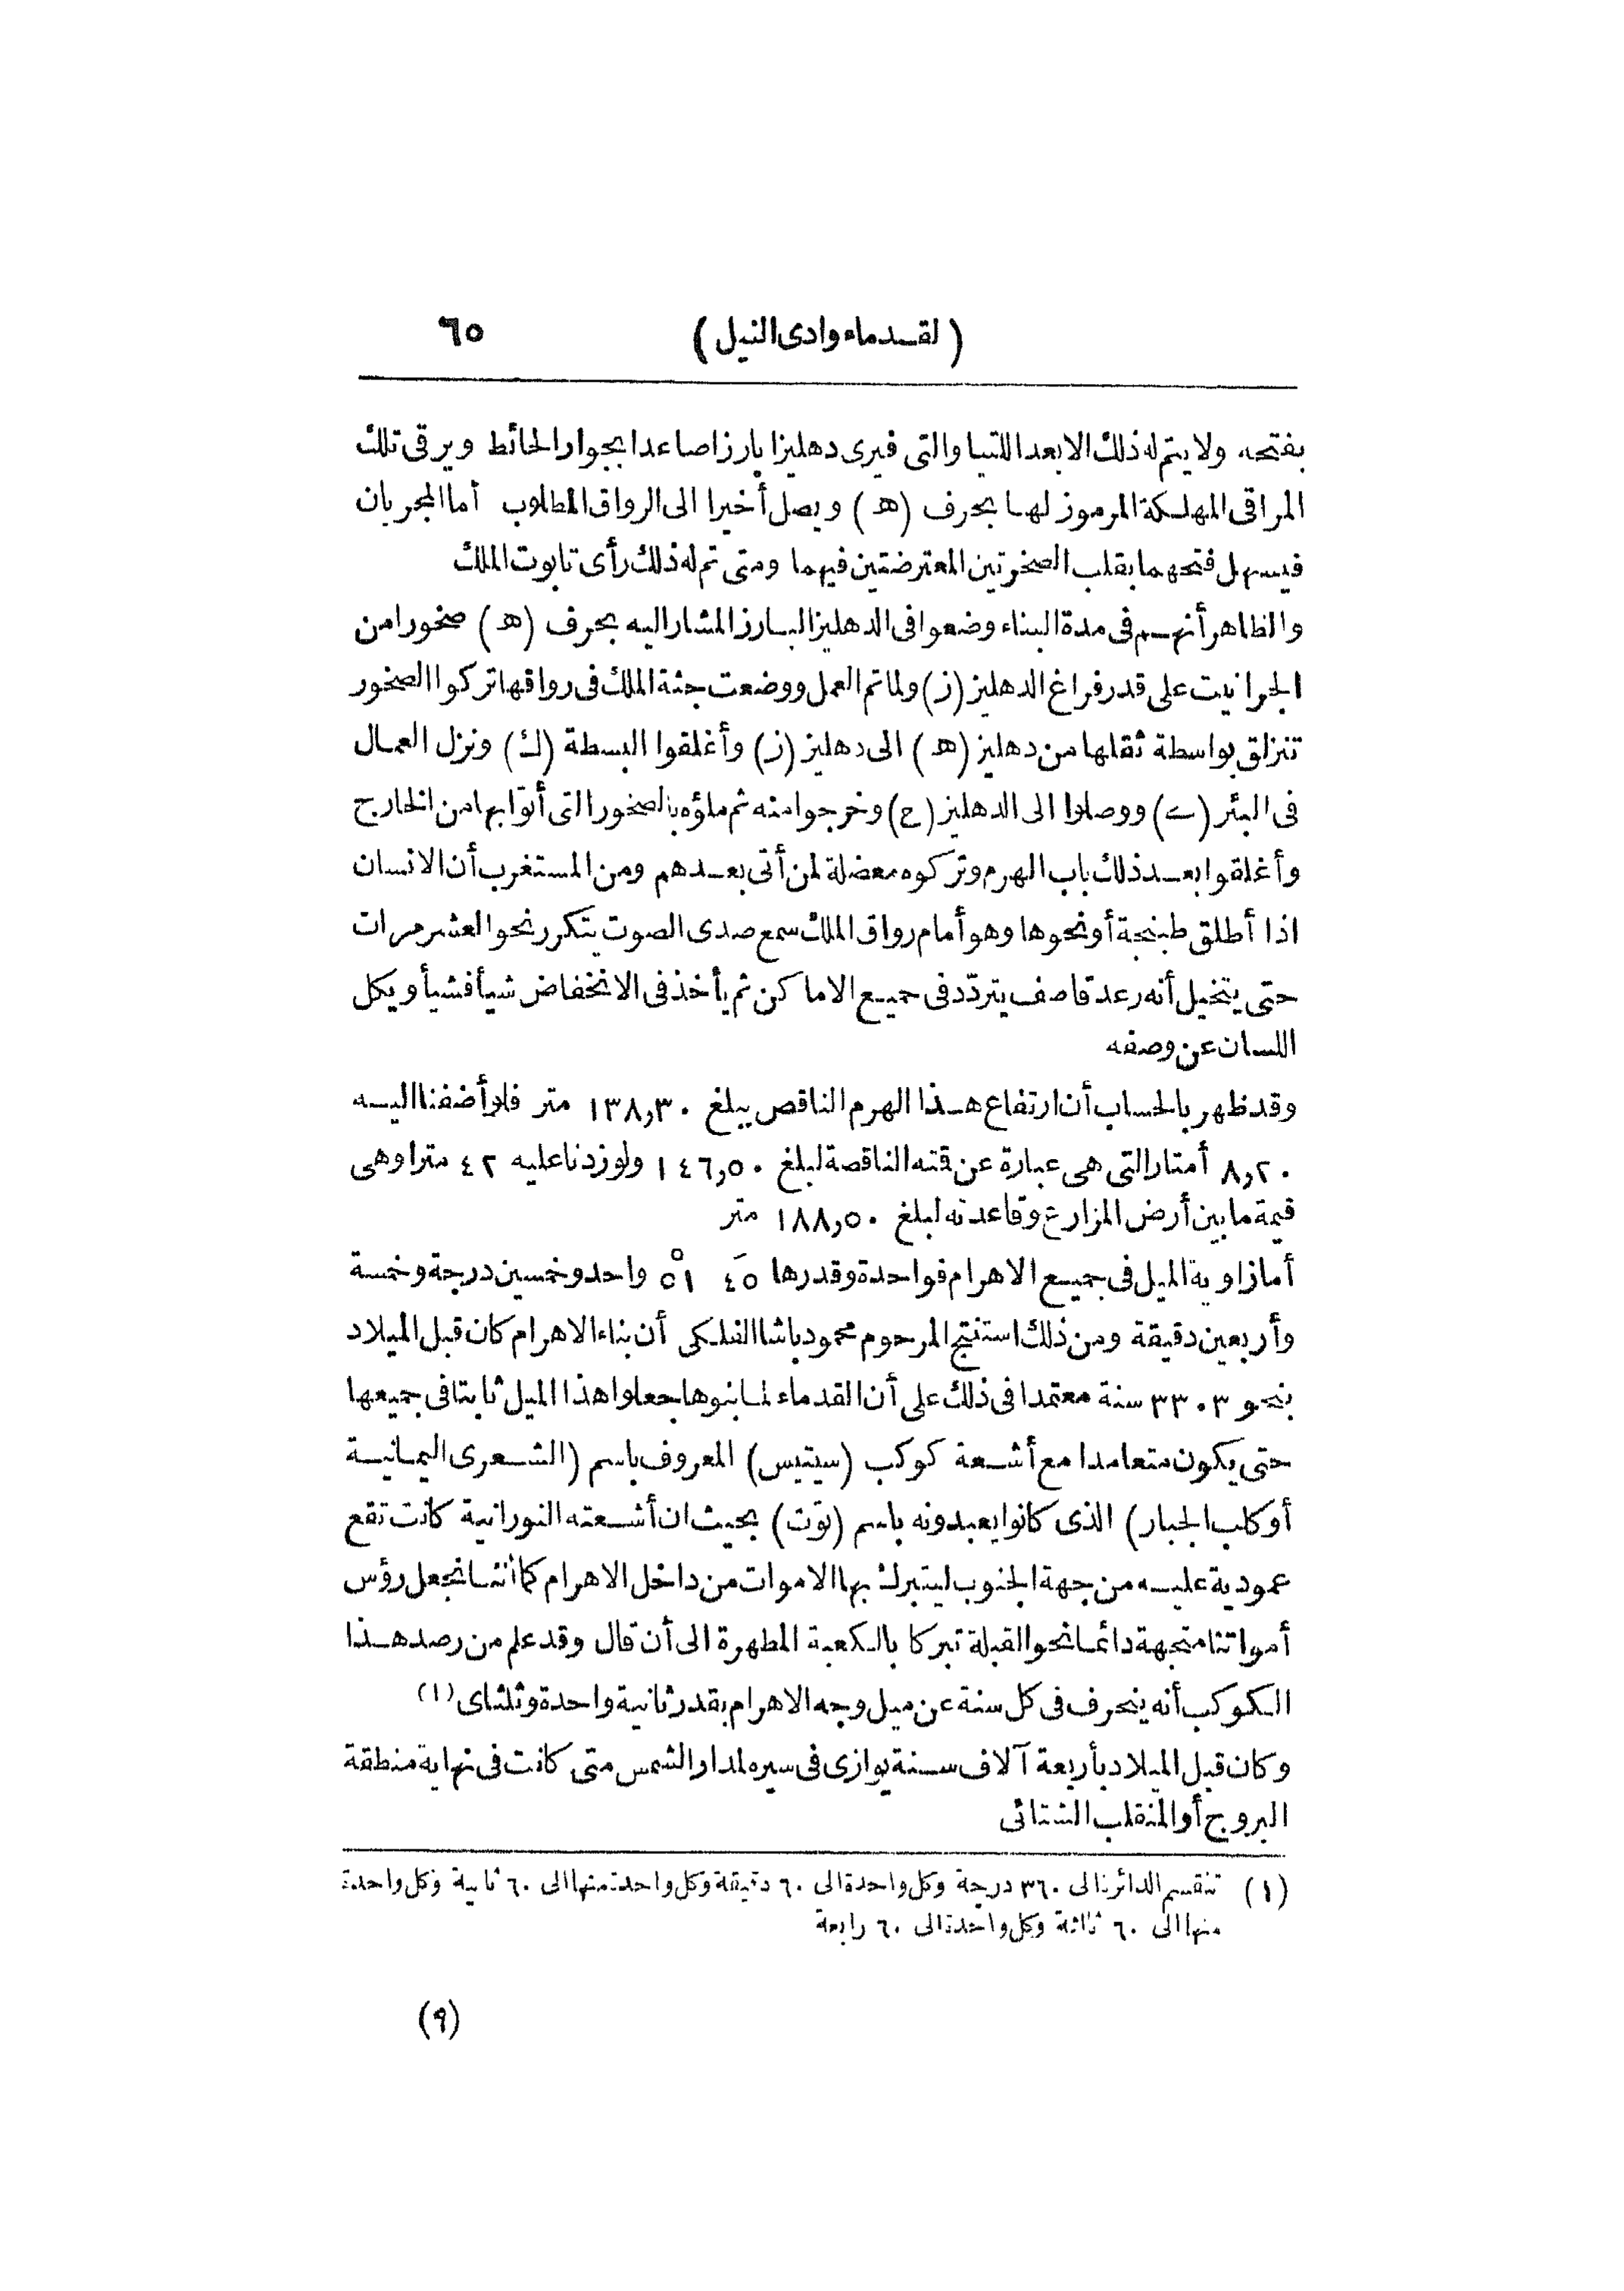 (لقدماء وادى النيل) ٦٥
بفتحه ولا يتم له ذلك الا بعد اللتيا والتى فيرى دهليزا بارزا صاعدا بجوار الحائط ويرقى تلك
المراقى المهلكة المرموز لها بحرف (ه) ويصل أخيرا الى الرواق المطلوب أما المجريان
فيسهل فتحهما بقلب الصخرتين المعترضتين فيهما ومتى تم له ذلك رأى تابوت الملك
والظاهر أنهم فى مدة البناء وضعوا فى الدهليز البارز المشار اليه بحرف (ه) صخورا من
الجرانيت على قدر فراغ الدهليز (ز) ولما تم العمل ووضعت جثة الملك فى رواقها تركوا الصخور
تنزلق بواسطة ثقلها من دهليز (ه) الى دهليز (ز) وأغلقوا البسطة (ك) ونزل العمال
فى البئر (ى) ووصلوا الى الدهليز (ح) وخرجوا منه ثم ملؤه بالصخور التى أتوا بها من الخارج
وأغلقوا بعد ذلك باب الهرم وتركوه معضلة لمن أتى بعدهم ومن المستغرب أن الانسان
اذا أطلق طبنجة أو نحوها وهو أمام رواق الملك سمع صدى الصوت يتكرر نحو العشر مرات
حتى يتخيل أنه رعد قاصف يتردّد فى جميع الاماكن ثم يأخذ فى الانخفاض شيأ فشيأ ويكل
اللسان عن وصفه
وقد ظهر بالحساب أن ارتفاع هذا الهرم الناقص يبلغ ١٣٨,٣٠ متر فلو أضفنا اليه
٨,٢٠ أمتار التى هى عبارة عن قته الناقصة لبلغ ١٤٦,٥٠ ولو زدنا عليه ٤٢ مترا وهى
قيمة ما بين أرض المزارع وقاعدته لبلغ ١٨٨,٥٠ متر
أما زاوية الميل فى جميع الاهرام فواحدة وقدرها ٤٥َ ٥١ْ واحد وخمسين درجة وخمسة
وأربعين دقيقة ومن ذلك استنتج المرحوم محمود باشا الفلكى أن بناء الاهرام كان قبل الميلاد
بنحو ٣٣٠٣ سنة معتمدا فى ذلك على أن القدماء لما بنوها جعلوا هذا الميل ثابتا فى جميعها
حتى يكون متعامدا مع أشعة كوكب (سيتيس) المعروف باسم (الشعرى اليمانية
أو كلب الجبار) الذى كانوا يعبدونه باسم (توت) بحيث ان أشعته النورانية كانت تقع
عمودية عليه من جهة الجنوب ليتبرك بها الاموات من داخل الاهرام كما أننا نجعل رؤس
أمواتنا متجهة دائما نحو القبلة تبركا بالكعبة المطهرة الى أن قال وقد علم من رصد هذا
الكوكب أنه ينحرف فى كل سنة عن ميل وجه الاهرام بقدر ثانية واحدة وثلثاى (١)
وكان قبل الميلاد بأربعة آلاف سنة يوازى فى سيره لمدار الشمس متى كانت فى نهاية منطقة
البروج أو المنقلب الشتائى
(١) تنقسم الدائرة الى ٣٦٠ درجة وكل واحدة الى ٦٠ دقيقة وكل واحدة منها الى ٦٠ ثانية وكل واحدة
منها الى ٦٠ ثالثة وكل واحدة الى ٦٠ رابعة
(٩)